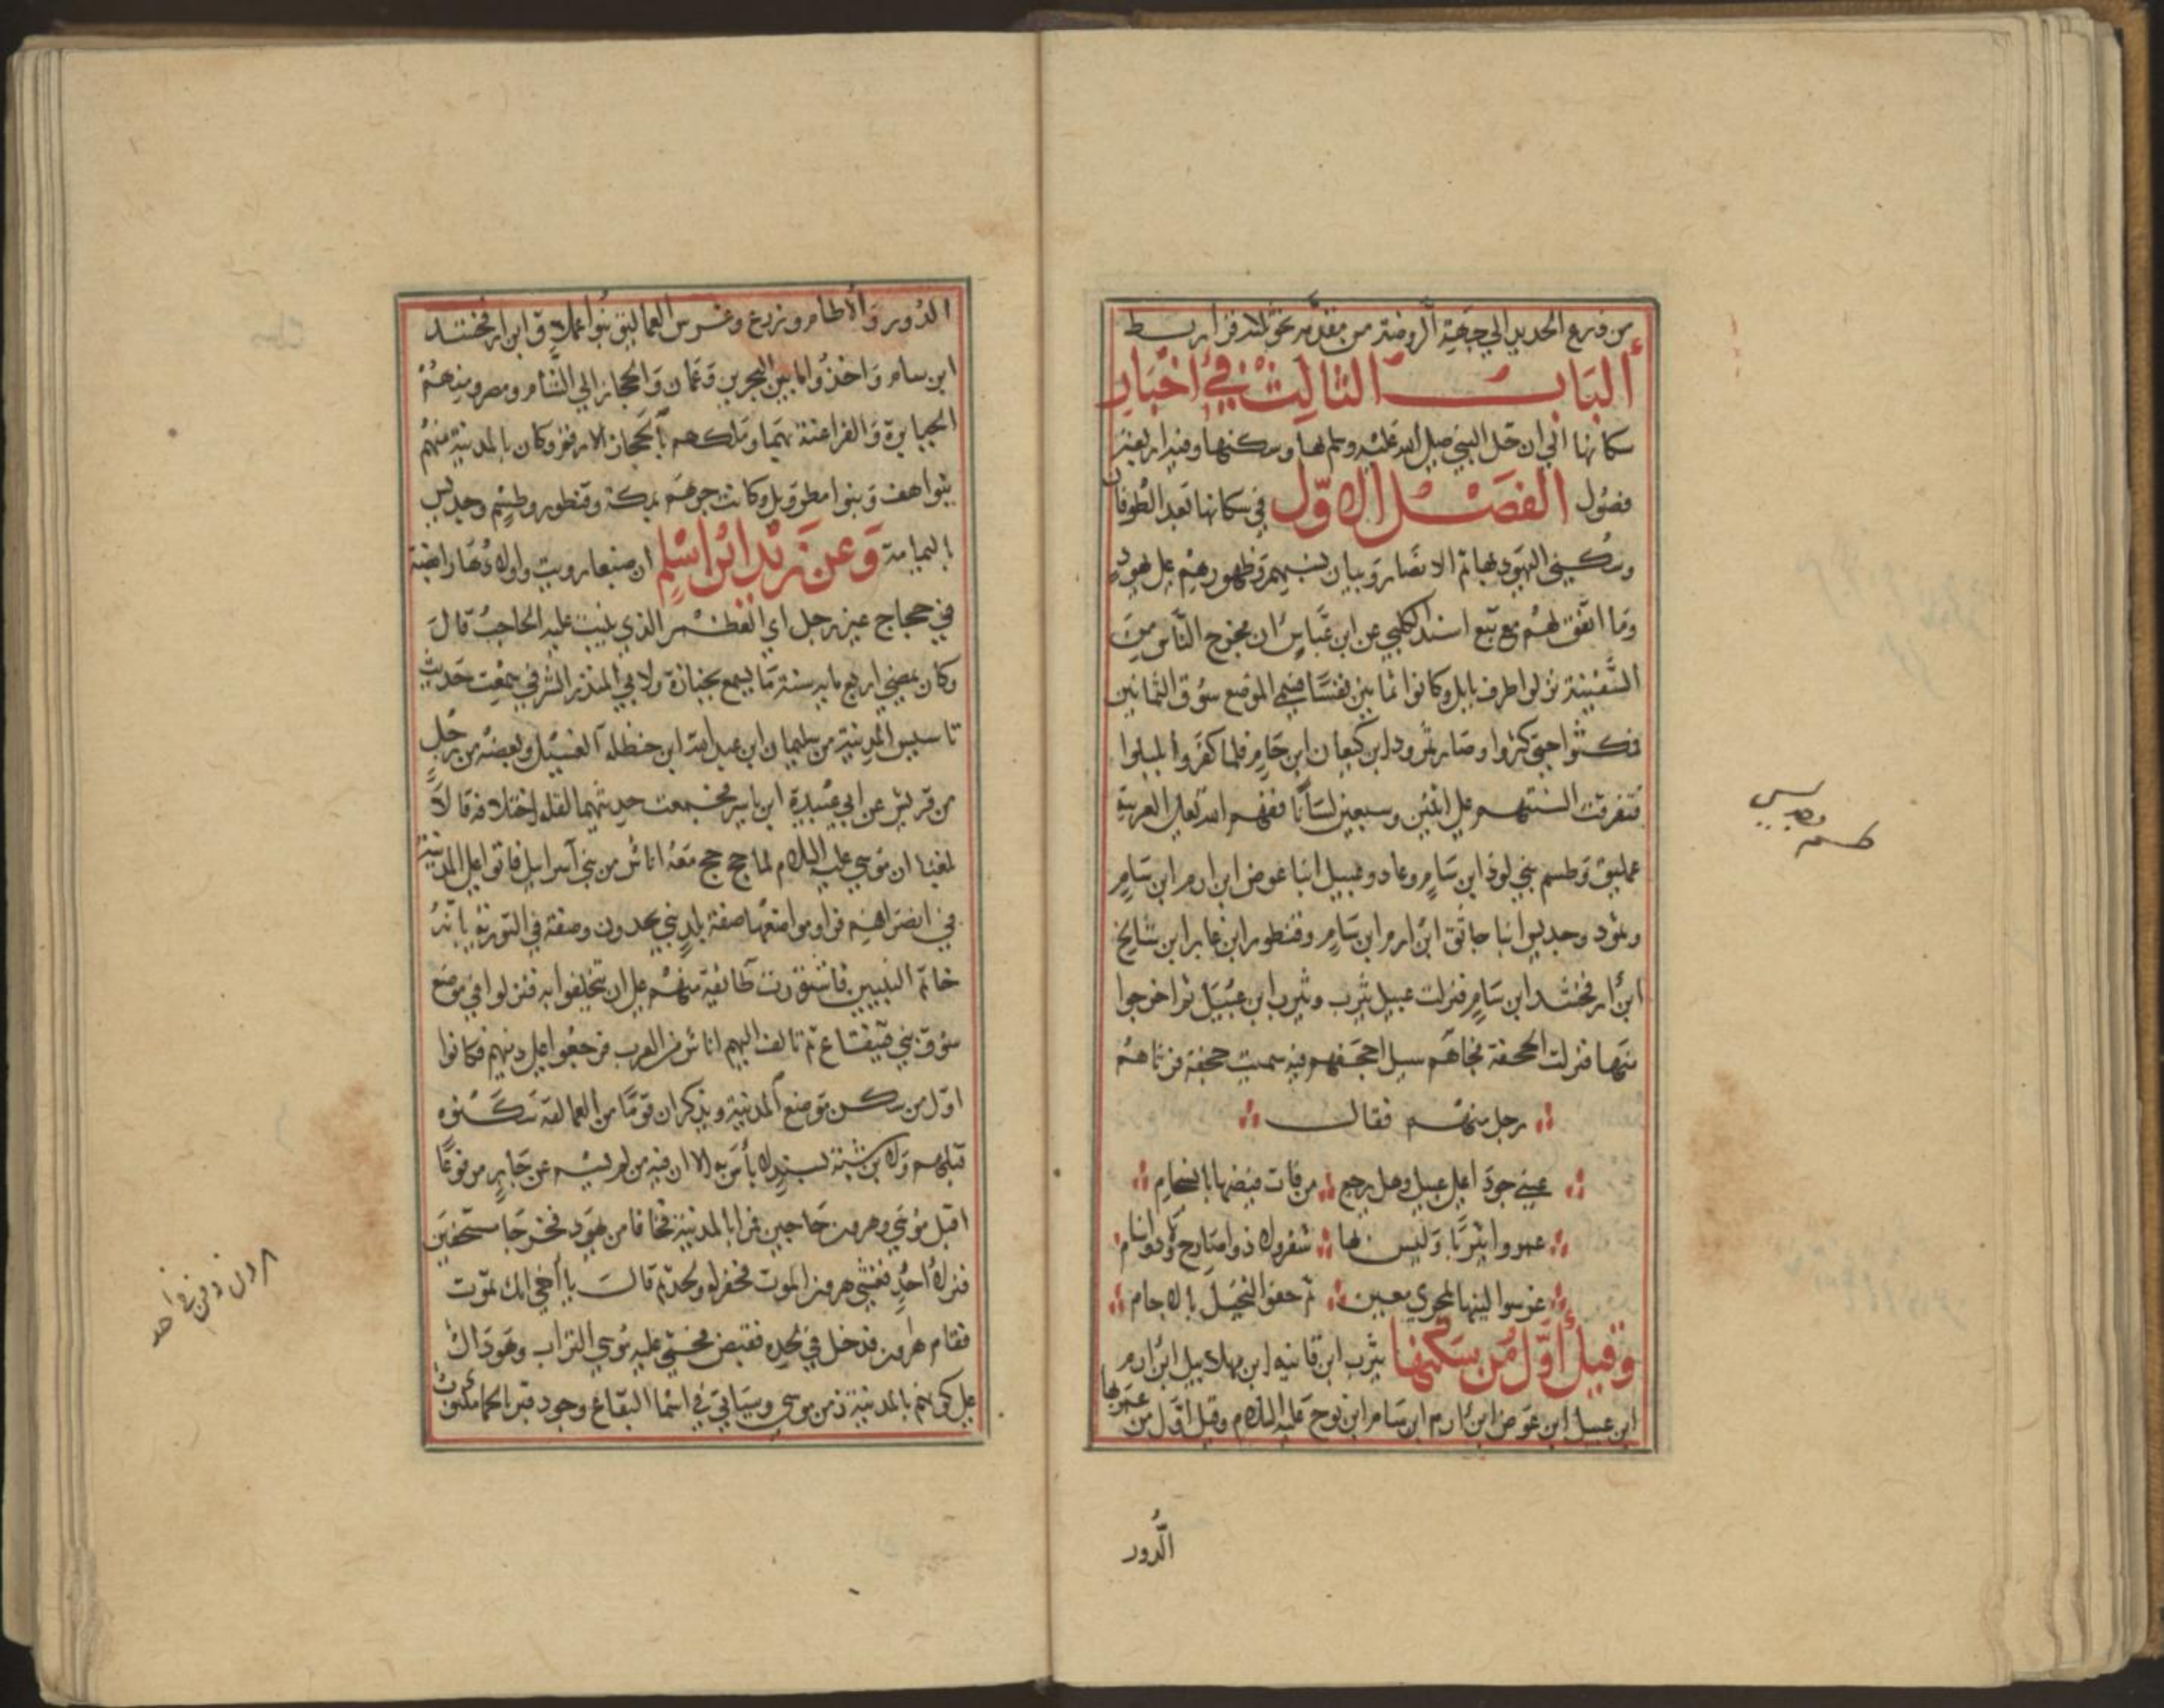 من ذرع الحديد الي جهة الروضة من مقدمه نحو ثلاثة قراريط
ألباب الثالث في أخبار
سكانها الي ان حل النبي صلي الله عليه وسلم بها وسكنها وفيه اربعة
فصول الفصل الاول في سكانها بعد الطوفان
وسكني اليهود بها ثم الانصار وبيان نسبهم وظهورهم علي يهود
وما اتفق لهم مع تبع اسند الكلبي عن ابن عباس ان مخرج الناس من
السفينة نزلوا طرف بابل وكانوا ثمانين نفسا فسمي الموضع سوق الثمانين
فمكثوا حتي كثروا وصار نمرود ابن كنعان ابن حام فلما كفروا بلبلوا
فتفرقت السنتهم علي اثنين وسبعين لسانا ففهم الله تعلي العربية
عمليق وطسم بني لوذ ابن سام وعاد وعبيل ابنا عوض ابن ارم ابن سام
وثمود وجديس ابنا جاثق ابن ارم ابن سام وقنطور ابن عابر ابن شالخ
ابن ارفخشد ابن سام فنزلت عبيل يثرب ويثرب ابن عبيل ثم اخرجوا
منها فنزلت الجحفة فجاهم سيل اجحفهم فيه سميت جحفة فرثاهم
رجل منهم فقال
عيني جودا علي عبيل وهل يرجع من فات فيضها بانسجام
عمروا يثربا وليس بها شفر ولا ذوا صارح ولا ذو سنام
غرسوا لينها بمجري معين ثم حفوا النخيل بالاجام
وقيل أول من سكنها يثرب ابن قانيه ابن مهلاييل ابن ارم
ابن عبيل ابن عوض ابن ارم ابن سام ابن نوح عليه السلام وقيل اول من عمر بها
الدور
طسم
وجديس
الدور والاطام وزرع وغرس العماليق بنوا عملاق ابن ارفخشد
ابن سام واخذوا ما بين البحرين وعمان والحجاز الي الشام ومصر ومنهم
الجبابرة والفراعنة بهما وملكهم بالحجاز الارقم وكان بالمدينة منهم
بنوا هف وبنوا مطرويل وكانت جرهم بمكة وقنطور وطسم وجديس
باليمامة وعن زيد ابن اسلم ان ضبعا رويت واولادها رابضة
في حجاج عين رجل اي العظم الذي ينبت عليه الحاجب قال
وكان يمضي اربع ماية سنة ما يسمع بجنازة ولابي المنذر الشرفي جمعت حديث
تاسيس المدينة من سليمان ابن عبد الله ابن حنظلة الغسيل وبعضه من رجل
من قريش عن ابي عبيدة ابن ياسر فجمعت حديثهما لقلة اختلافه قالا
بلغنا ان موسي عليه السلام لما حج حج معه اناس من بني اسراييل فاتوا علي المدينة
في انصرافهم فراو موضعها صفة بلد نبي يجدون وصفه في التورية بانه
خاتم النبيين فاشتورت طائفة منهم علي ان يتخلفوا به فنزلوا في موضع
سوق بني قينقاع ثم تالف اليهم اناس من العرب فرجعوا علي دينهم فكانوا
اول من سكن موضع المدينة ويذكر ان قوما من العمالقة سكنوه
قبلهم ولابن شبة بسند لا بأس به الا ان فيه من لم يسم عن جابر مرفوعا
اقبل موسي وهرون حاجين فمرا بالمدينة فخافا من يهود فخرجا مستخفين
فنزلا احد فغشي هرون الموت فحفر له ولحد ثم قال يا أخي انك تموت
فقام هارون فدخل في لحده فقبض فحثي عليه موسي التراب وهو دال
علي كونهم بالمدينة زمن موسي وسياتي في اسما البقاع وجود قبر الحما مكتوب
هرون دفن في احد